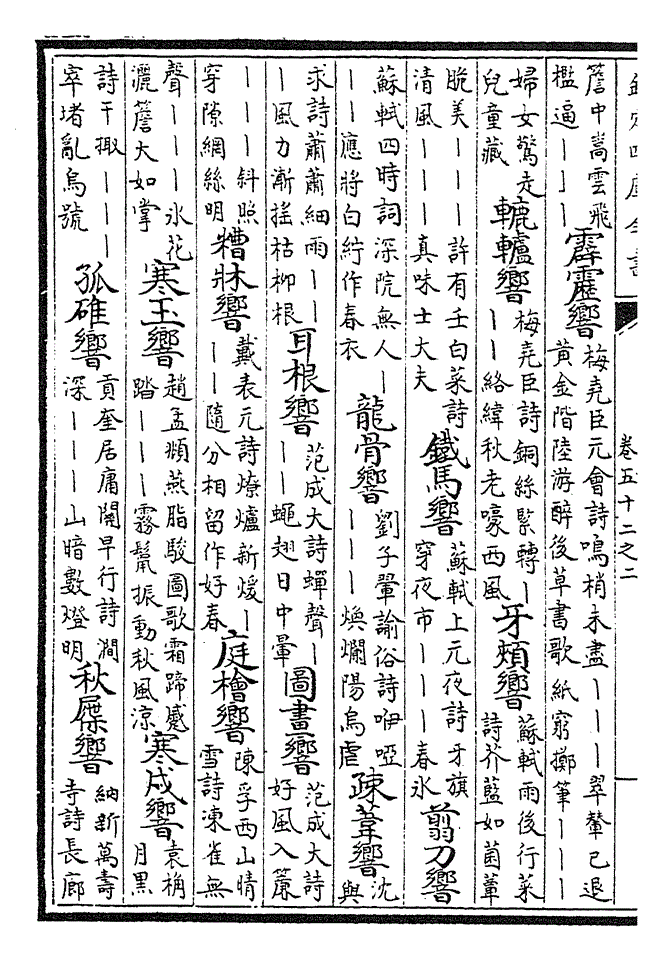 欽定四庫全書
卷五十二之二
簷中嵩雲飛
檻逼｜｜｜
霹靂響
梅堯臣元會詩鳴梢未盡｜｜｜翠輦已退
黃金階陸游醉後草書歌紙窮擲筆｜｜｜
婦女驚走
兒童藏
轆轤響
梅堯臣詩銅絲緊轉｜
｜｜絡緯秋老嚎西風
牙頰響
蘇軾雨後行菜
詩芥藍如菌蕈
脆美｜｜｜許有壬白菜詩
清風｜｜｜｜真味士大夫
鐵馬響
蘇軾上元夜詩牙旗
穿夜市｜｜｜春氷
翦刀響
蘇軾四時詞深院無人｜
｜｜應將白紵作春衣
龍骨響
劉子翬諭俗詩咿啞
｜｜｜煥爛陽烏虐
疎葦響
沈
與
求詩蕭蕭細雨｜｜
｜風力漸搖枯柳根
耳根響
范成大詩蟬聲｜
｜｜蠅翅日中暈
圖畫響
范成大詩
好風入簾
｜｜｜斜照
穿隙網絲明
糟牀響
戴表元詩燎爐新煖｜
｜｜隨分相留作好春
庭檜響
陳孚西山晴
雪詩凍雀無
聲｜｜｜氷花
灑簷大如掌
寒玉響
趙孟頫燕脂駿圖歌霜蹄蹙
踏｜｜｜霧鬛振動秋風涼
寒戍響
袁桷
月黑
詩干掫｜｜｜
窣堵亂烏號
孤碓響
貢奎居庸關早行詩澗
深｜｜｜山暗數燈明
秋屧響
納新萬壽
寺詩長廊